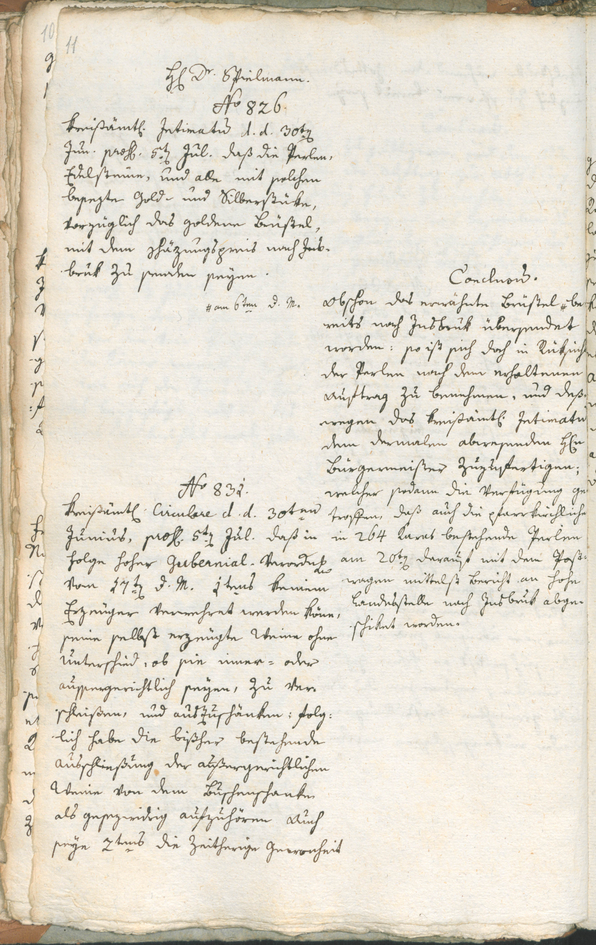 11
H: Dr. Spielmann.
No 826.
Kreißämtl: Intimatum d. d. 30ten
Jun. praes. 5t: Jul. daß die Perlen,
Edelsteine, und alle mit solchen
besezte Gold- und Silberstüke,
vorzüglich das goldene Brüstel,
mit dem schäzungspreis nach Ins-
bruk zu senden seyen.
Conclusum.
#am 6ten d. M. obschon das erwähnte Brüstel # be
reits nach Insbruk übersendet
worden: so ist sich doch in Rüksicht
der Perlen nach dem erhaltenen
Auftrag zu benehmen, und deß-
wegen das kreißämtl: Intimatum
dem dermalen abwesenden H:
Bürgermeister zuzufertigen;
welcher sodann die Verfügung ge
troffen, daß auch die pfarrkirchliche
in 264 Carat bestehende Perlen
am 20t: darauf mit dem Post-
wagen mittelst Bericht an hohe
Landesstelle nach Insbruk abge-
schiket worden.
No 831.
Kreißämtl: Circulare d. d. 30ten
Junius, praes. 5t: Jul. daß in
Folge hoher Gubernial-Verordnung
vom 17t: d. M. 1tens keinem
Erzeuger verwehret werden könne,
seine selbst erzeugte Weine ohne
Unterschied, ob sie inner- oder
aussergerichtlich seyen, zu ver
schleißen, und auszuschänken: folg-
lich habe die bißher bestehende
Ausschließung der außergerichtlichen
Weine von dem Buschenschanke
als gesezwidrig aufzuhören. Auch
seye 2tens die zeitherige Gewonheit